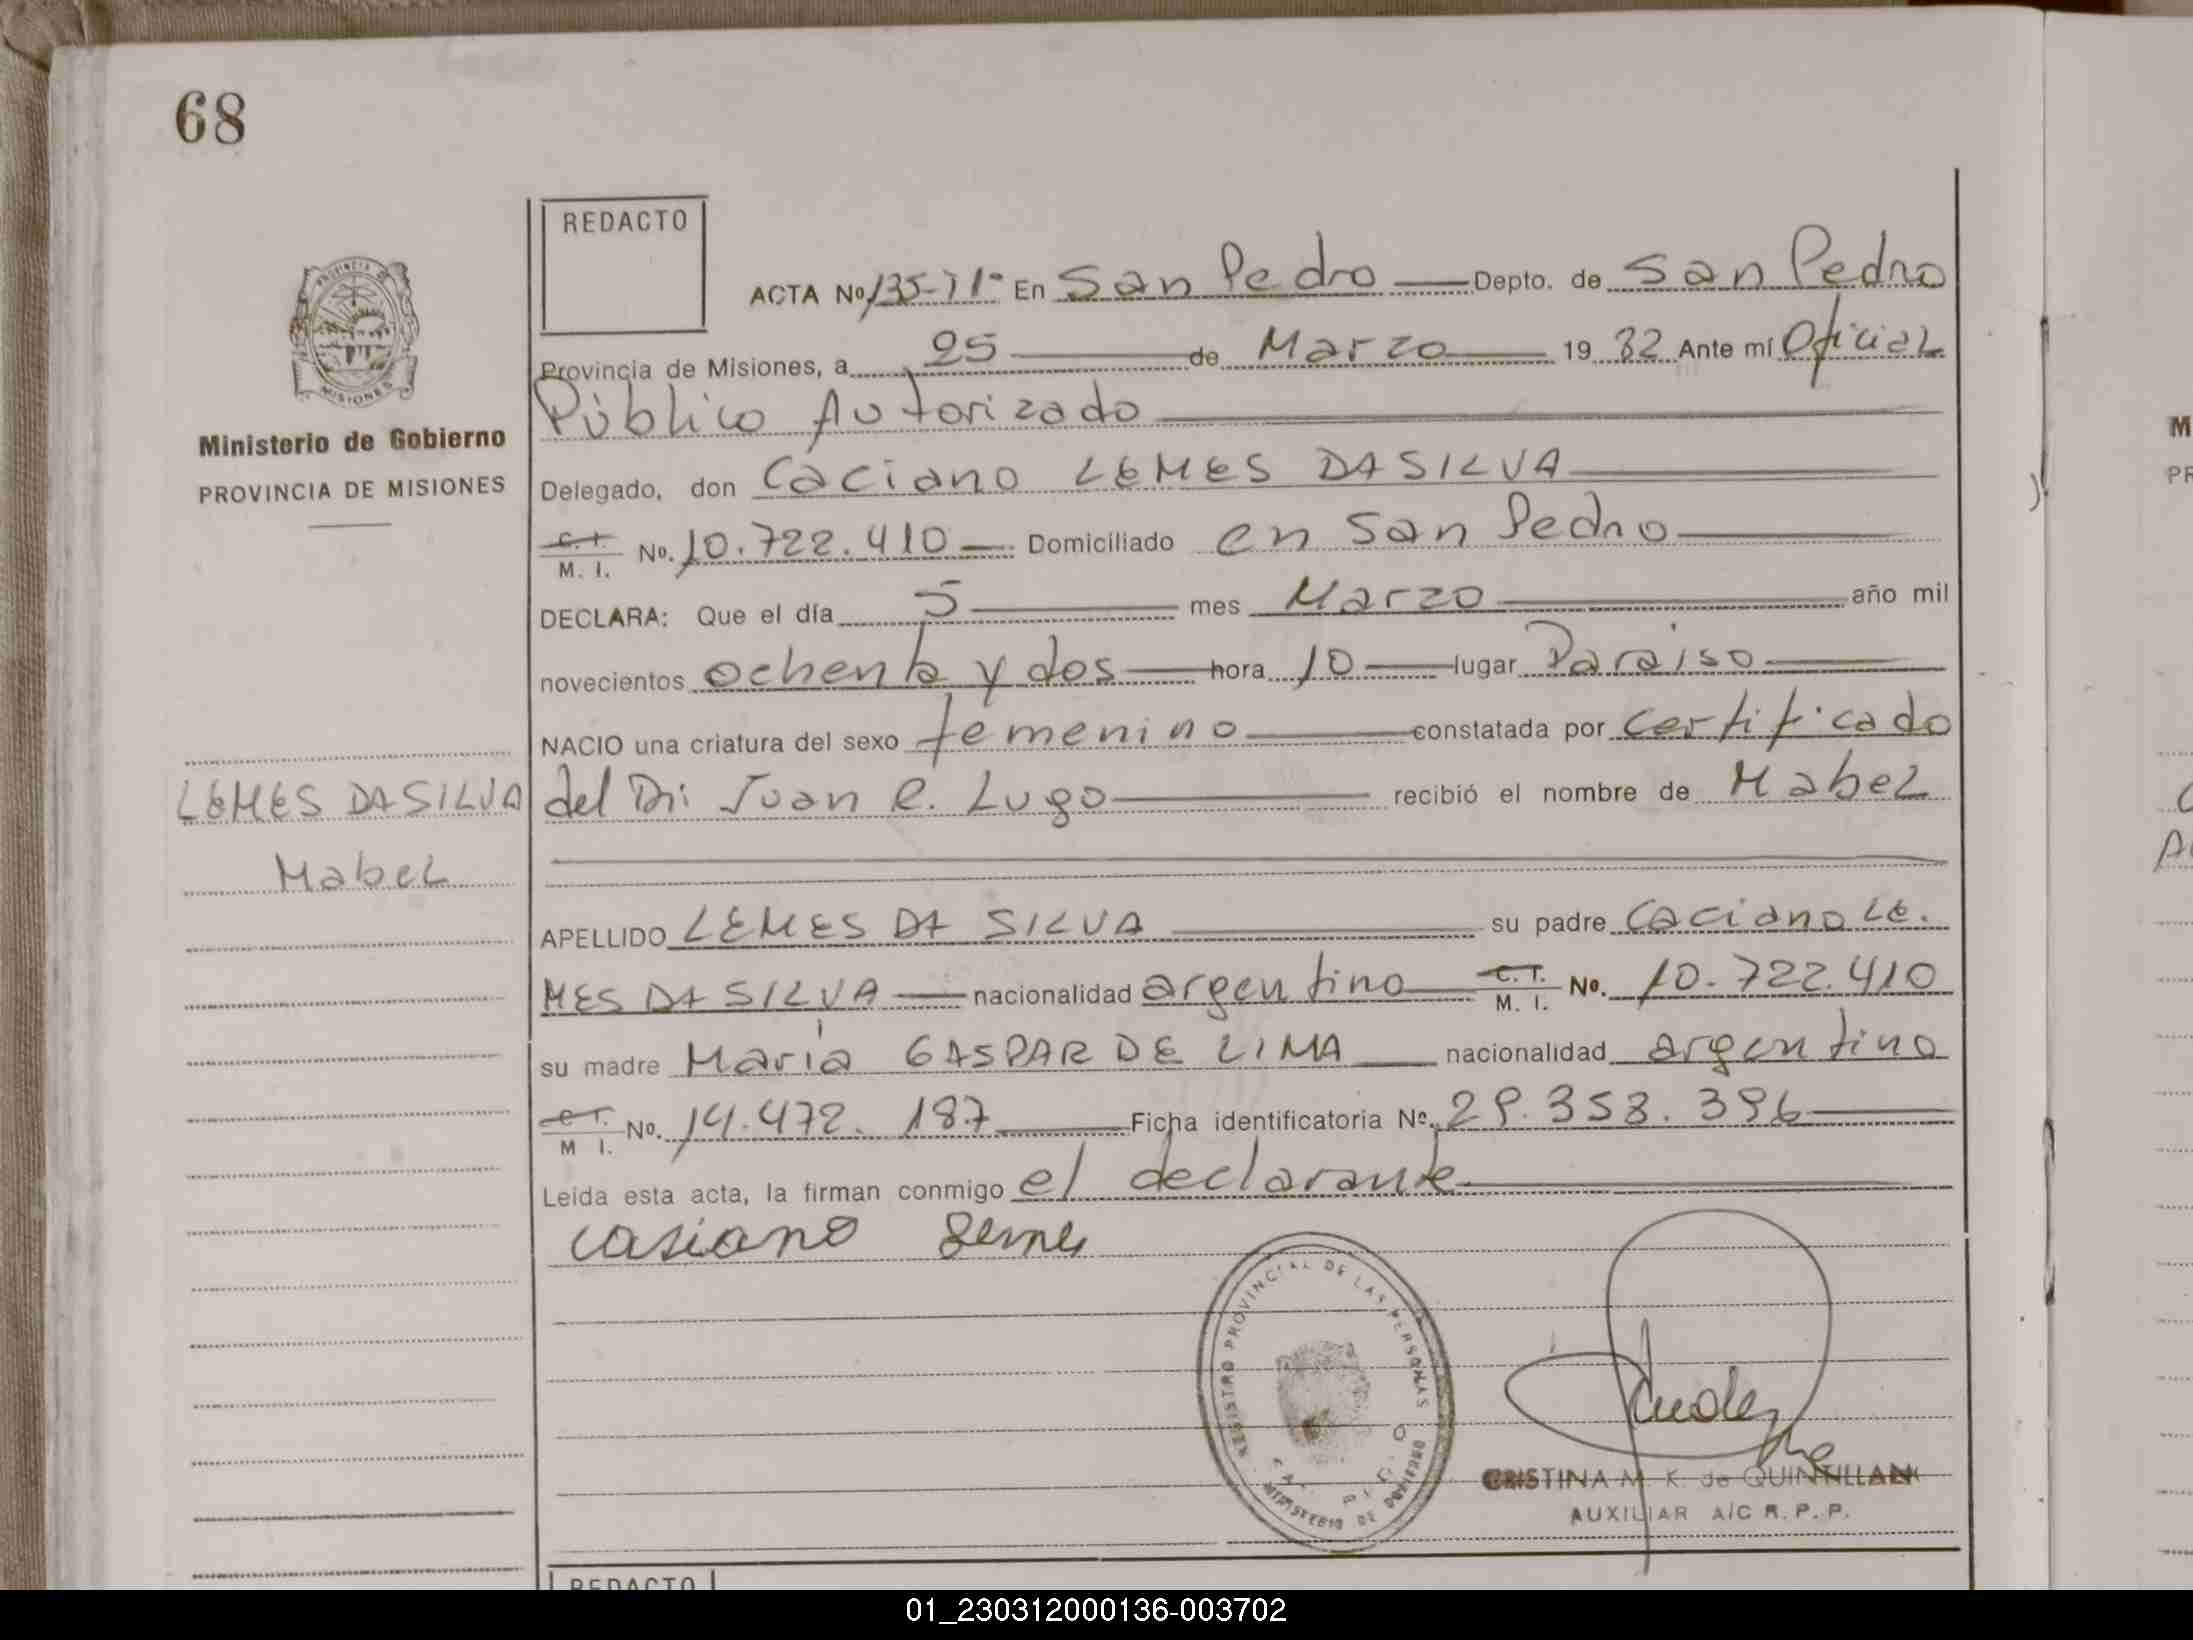 68
REDACTO
ACTA No 135-T1º En San Pedro Depto. de San Pedro
Provincia de Misiones, a 25 de Marzo 19 82 Ante mí Oficial
Público Autorizado
Delegado, don Caciano LEMES DA SILVA
C. I. M. I. No. 10.722.410 Domiciliado en San Pedro
DECLARA: Que el día 5 mes Marzo año mil
novecientos ochenta y dos hora 10 lugar Paraiso
NACIO una criatura del sexo femenino constatada por certificado
del Dr: Juan R. Lugo recibió el nombre de Mabel
APELLIDO LEMES DA SILVA su padre Caciano LE.
MES DA SILVA nacionalidad argentino C. I. M. I. No. 10.722.410
su madre María GASPAR DE LIMA nacionalidad argentina
C I. M I. No. 14.472.187 Ficha identificatoria No. 29.353.396
Leída esta acta, la firman conmigo el declarante
Casiano Lemes
PROVINCIA DE
MISIONES
Ministerio de Gobierno
PROVINCIA DE MISIONES
LEMES DA SILVA
Mabel
REGISTRO PROVINCIAL DE LAS PERSONAS
MINISTERIO DE GOBIERNO
CRISTINA M. K. de QUINTILLAN
AUXILIAR A/C R. P. P.
REDACTO
01_230312000136-003702